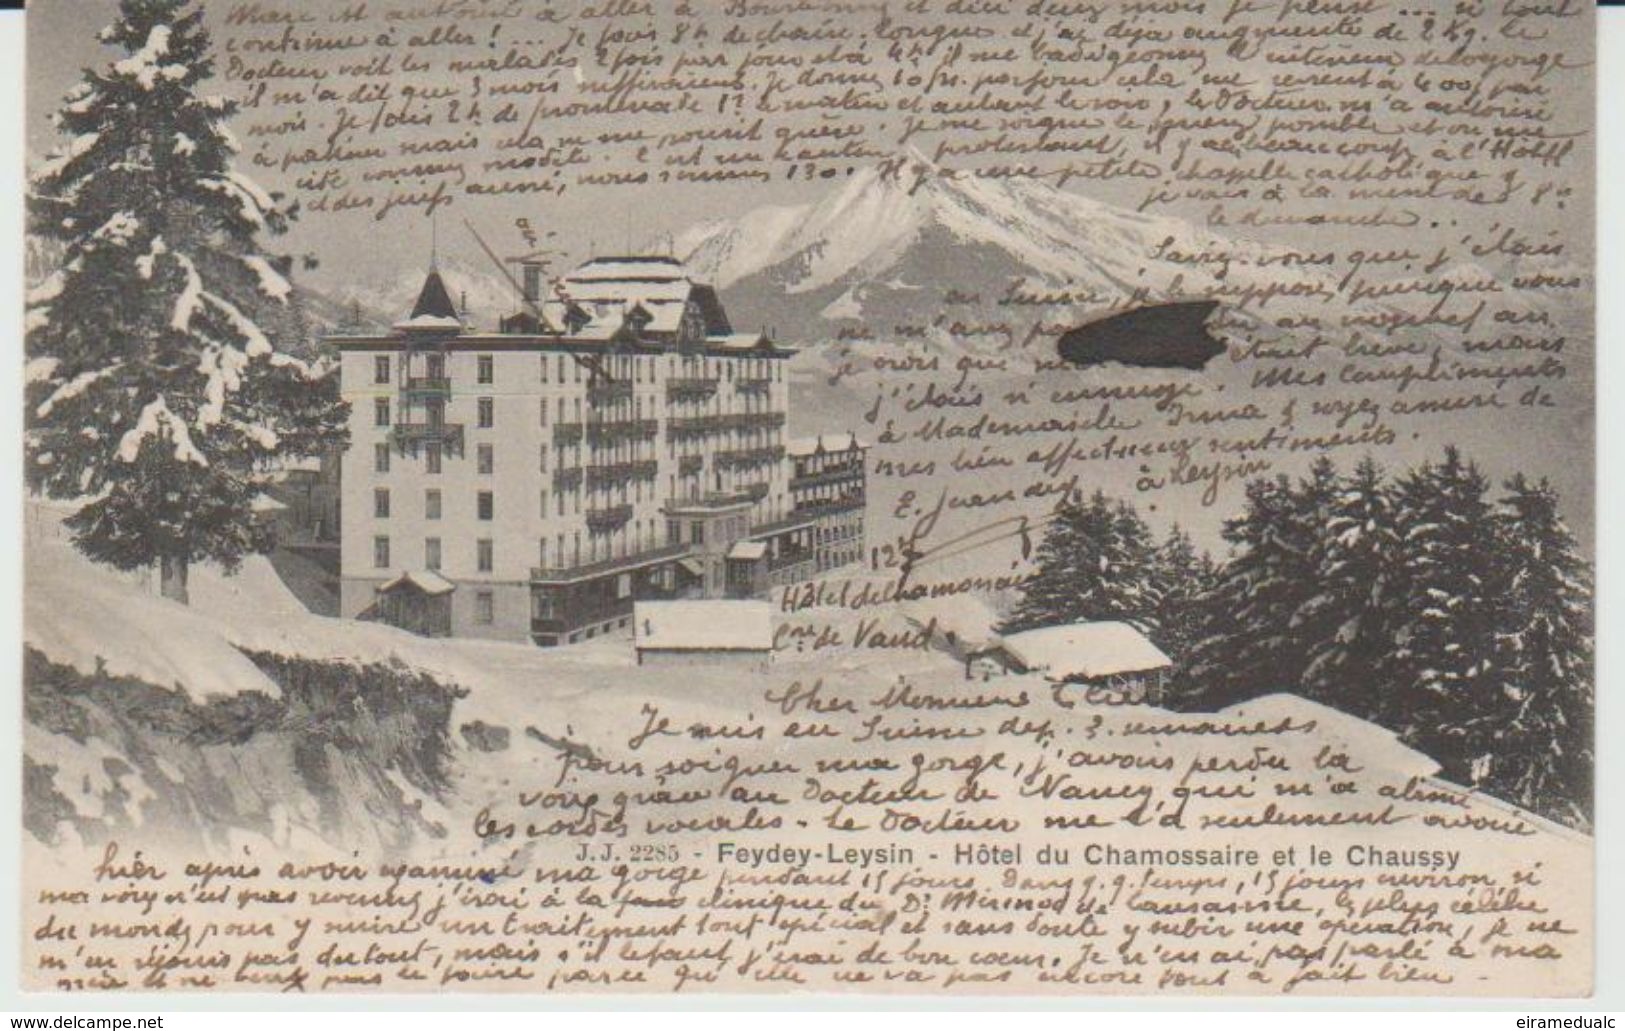 Marc est autorisé à aller à et d'ici deux mois je pense ... si tout
continue à aller ! ... Je fais 8h de chaise-longue et j'ai déjà augmenté de 2 kg. Le
Docteur voit les malades 2 fois par jour et à 4h il me badigeonne l'intérieur de la gorge
il m'a dit que 3 mois suffiraient. Je donne 10 fr. par jour cela me revient à 400f par
mois. Je fais 2h de promenade 1h le matin et autant le soir, le Docteur m'a autorisé
à patiner mais cela ne me sourit guère. Je me soigne le mieux possible et on me
cite comme modèle. C est un protestant, il y a beaucoup à l'Hôtel
et des juifs aussi, nous sommes 130. Il y a une petite chapelle catholique &
je vais à la messe de 8h
le dimanche ..
Saviez-vous que j'étais
en Suisse, je le suppose puisque vous
ne m'avez pas au
je crois que était brève, mais
j'étais si ennuyé. Mes compliments
à Mademoiselle Irma & soyez assuré de
mes bien affectueux sentiments.
E. Jeandey à Leysin
Hôtel du Chamossaire
Con de Vaud
Cher Monsieur
Je suis en Suisse dep. 3 semaines
pour soigner ma gorge, j'avais perdu la
voix grâce au Docteur de Nancy, qui m'a abîmé
les cordes vocales - Le Docteur me l'a seulement avoué
J.J. 2285 - Feydey-Leysin - Hôtel du Chamossaire et le Chaussy
hier après avoir examiné ma gorge pendant 15 jours. Dans q.q. temps, 15 jours environ, si
ma voix n'est pas revenue j'irai à la clinique du Dr de Lausanne, le plus célèbre
du monde pour y suivre un traitement tout spécial et sans doute y subir une opération, je ne
m'en réjouis pas du tout, mais s'il le faut j'irai de bon cœur. Je n'en ai pas parlé à ma
mère et ne veux pas le faire parce qu'elle ne va pas encore tout à fait bien -
eiramedualc
www.delcampe.net